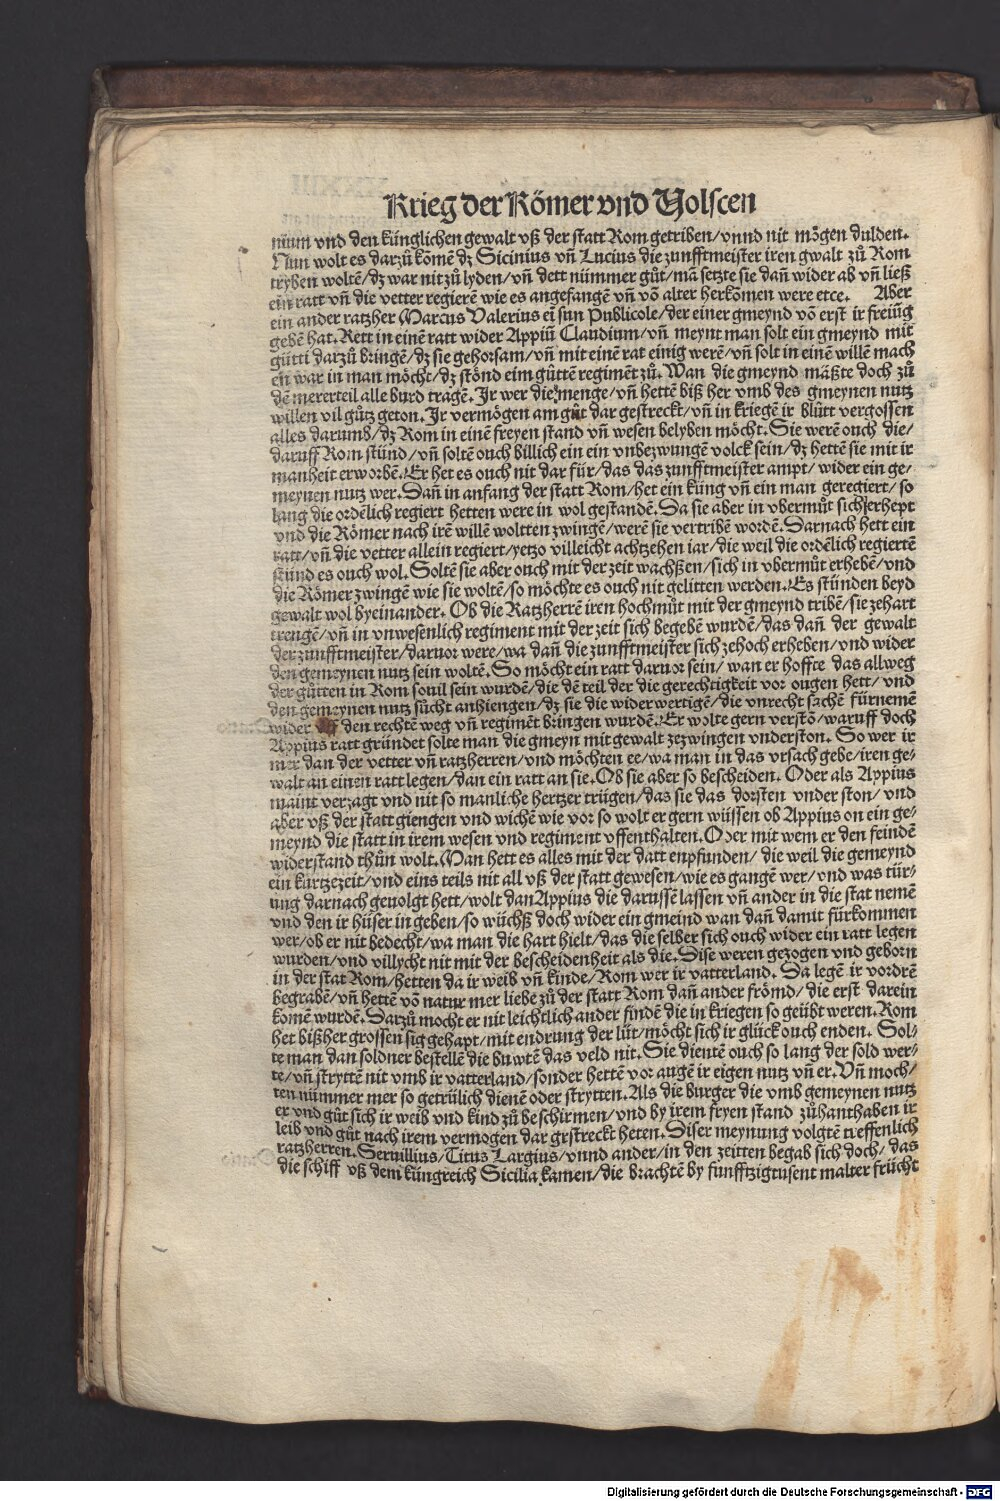 Krieg der Römer vnd Volscen
nium vnd den künglichen gewalt vß der statt Rom getriben/vnnd nit mögen dulden.
Nun wolt es darzů komē dz Sicinius vñ Lucius die zunfftmeister iren gwalt zů Rom
tryben woltē/dz war nit zů lyden/vñ dett nümmer gůt/mā setzte sie dañ wider ab vñ ließ
ein ratt vñ die vetter regierē wie es angefangē vñ vō alter herkomen were etce. Aber
ein ander ratzher Marcus Valerius eī sun Publicole/der einer gmeynd vō erst ir freiüg
gebē hat. Rett in einē ratt wider Appiū Claudium/vñ meynt man solt ein gmeynd mit
gütti darzů bringē/dz sie gehorsam/vñ mit einē rat einig werē/vñ solt in einē willē mach
en war in man möcht/dz stönd eim gůttē regimēt zů. Wan die gmeynd mäßte doch zů
dē mererteil alle burd tragē. Ir wer die menge/vñ hettē biß her vmb des gmeynen nutz
willen vil gůtz geton. Ir vermögen am gůt dar gestreckt/vñ in kriegē ir blůtt vergossen
alles darumb/dz Rom in einē freyen stand vñ wesen belyben möcht. Sie werē ouch die/
daruff Rom stünd/vñ soltē ouch billich ein ein vnbezwungē volck sein/dz hettē sie mit ir
manheit erworbē. Er het es ouch nit dar für/das das zunfftmeister ampt/wider ein ge/
meynen nutz wer. Dañ in anfang der statt Rom/het ein küng vñ ein man geregiert/so
lang die ordēlich regiert hetten were in wol gestandē. Da sie aber in vbermůt sich erhept
vnd die Römer nach irē willē woltten zwingē/werē sie vertribē wordē. Darnach hett ein
ratt/vñ die vetter allein regiert/yetzo villeicht achtzehen iar/die weil die ordēlich regiertē
stünd es ouch wol. Soltē sie aber ouch mit der zeit wachßen/sich in vbermůt erhebē/vnd
die Römer zwingē wie sie woltē/so möchte es ouch nit gelitten werden. Es stünden beyd
gewalt wol byeinander. Ob die Ratzherrē iren hochmůt mit der gmeynd tribē/sie zehart
trengē/vñ in vnwesenlich regiment mit der zeit sich begebē wurdē/das dañ der gewalt
der zunfftmeister/daruor were/wa dañ die zunfftmeister sich zehoch erheben/vnd wider
den gemeynen nutz sein woltē. So möcht ein ratt daruor sein/wan er hoffte das allweg
der gůtten in Rom souil sein wurdē/die dē teil der die gerechtigkeit vor ougen hett/vnd
den gemeynen nutz sůcht anhiengen/dz sie die widerwertigē/die vnrecht sachē fürnemē
wider vff den rechtē weg vñ regimēt bringen wurdē. Er wolte gern verstō/waruff doch
Appius ratt gründet solte man die gmeyn mit gewalt zezwingen vnderston. So wer ir
mer dan der vetter vñ ratzherren/vnd möchten ee/wa man in das vrsach gebe/iren ge/
walt an einen ratt legen/dan ein ratt an sie. Ob sie aber so bescheiden. Oder als Appius
maint verzagt vnd nit so manliche hertzer trügen/das sie das dorsten vnder ston/vnd
aber vß der statt giengen vnd wichē wie vor so wolt er gern wüssen ob Appius on ein ge/
meynd die statt in irem wesen vnd regiment vffenthalten. Oder mit wem er den feindē
widerstand thůn wolt. Man hett es alles mit der datt enpfunden/die weil die gemeynd
ein kurtzezeit/vnd eins teils nit all vß der statt gewesen/wie es gangē wer/vnd was tür/
ung darnach geuolgt hett/wolt dan Appius die darussē lassen vñ ander in die stat nemē
vnd den ir hüser in geben/so wüchß doch wider ein gmeind wan dañ damit fürkommen
wer/ob er nit bedecht/wa man die hart hielt/das die selber sich ouch wider ein ratt legen
wurden/vnd villycht nit mit der bescheidenheit als die. Dise weren gezogen vnd geborn
in der stat Rom/hetten da ir weib vñ kinde/Rom wer ir vatterland. Da legē ir vordrē
begrabē/vñ hettē vō natur mer liebe zů der statt Rom dañ ander frömd/die erst darein
komē wurdē. Darzů mocht er nit leichtlich ander findē die in kriegen so geübt weren. Rom
het bißher grossen sig gehapt/mit endrung der lüt/möcht sich ir glück ouch enden. Sol/
te man dan soldner bestellē die buwtē das veld nit. Sie dientē ouch so lang der sold wer/
te/vñ stryttē nit vmb ir vatterland/sonder hettē vor augē ir eigen nutz vñ er. Vñ moch/
ten nümmer mer so getrülich dienē oder strytten. Als die burger die vmb gemeynen nutz
er vnd gůt sich ir weib vnd kind zů beschirmen/vnd by irem fryen stand zůhanthaben ir
leib vnd gůt nach irem vermogen dar grstreckt heten. Diser meynung volgtē treffenlich
ratzherren. Seruillius/Titus Largius/vnnd ander/in den zeitten begab sich doch/das
die schiff vß dem küngreich Sicilia kamen/die brachtē by funfftzigtusent malter frücht
Digitalisierung gefördert durch die Deutsche Forschungsgemeinschaft - DFG